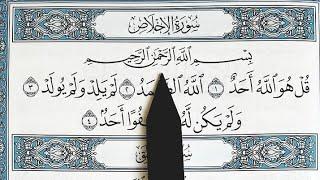 سُورَةُ الإِخْلَاصِ
بِسْمِ اللَّهِ الرَّحْمَٰنِ الرَّحِيمِ
قُلْ هُوَ اللَّهُ أَحَدٌ ١ اللَّهُ ٢ لَمْ يَلِدْ وَلَمْ يُولَدْ ٣
وَلَمْ يَكُن لَّهُ أَحَدٌ ٤